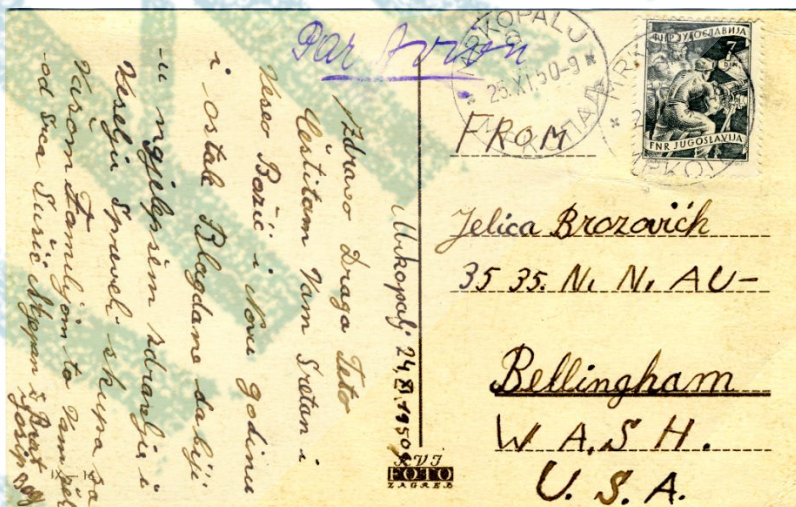 Par Avion
MRKOPALJ
25.XI.50-9
МРКОПАЉ
ФНР ЈУГОСЛАВИЈА
7
FNR JUGOSLAVIJA
FROM
Jelica Brozovich
35 35. N. N. AU-
Bellingham
W A.S H.
U. S. A.
Mrkopalj 24.XI.1950g
Zdravo Draga Teto
Čestitam Vam Sretan i
Veseo Božić i Novu godinu
i ostale Blagdane da biji
u najlepšem zdravlju i
Veselju Spraveli skupa sa
Vašom Familijom to Vam želi
od srca Sušić Stjepan i Brat
Josip
FOTO
ZAGREB